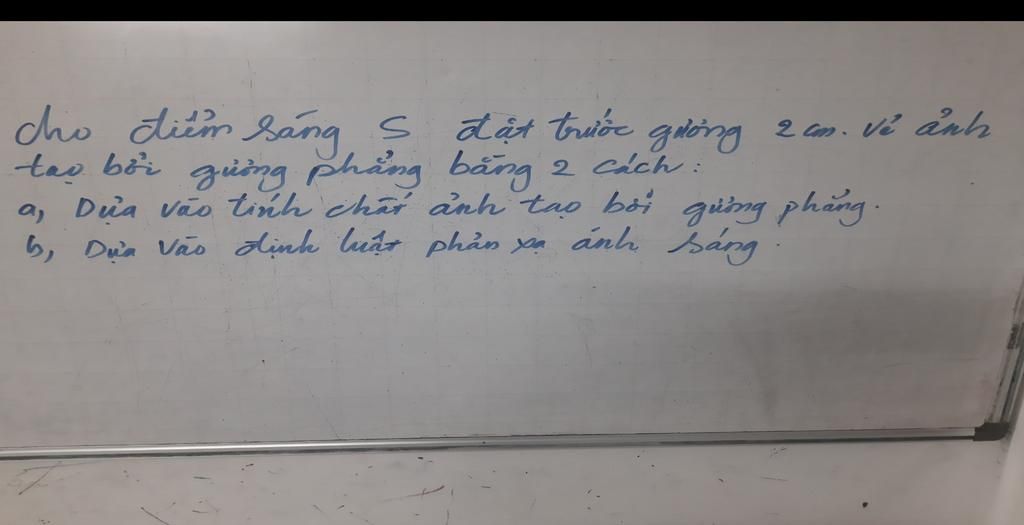 cho điểm sáng S đặt trước gương 2 cm. Vẽ ảnh
tạo bởi gương phẳng bằng 2 cách:
a, Dựa vào tính chất ảnh tạo bởi gương phẳng.
b, Dựa vào định luật phản xạ ánh sáng.